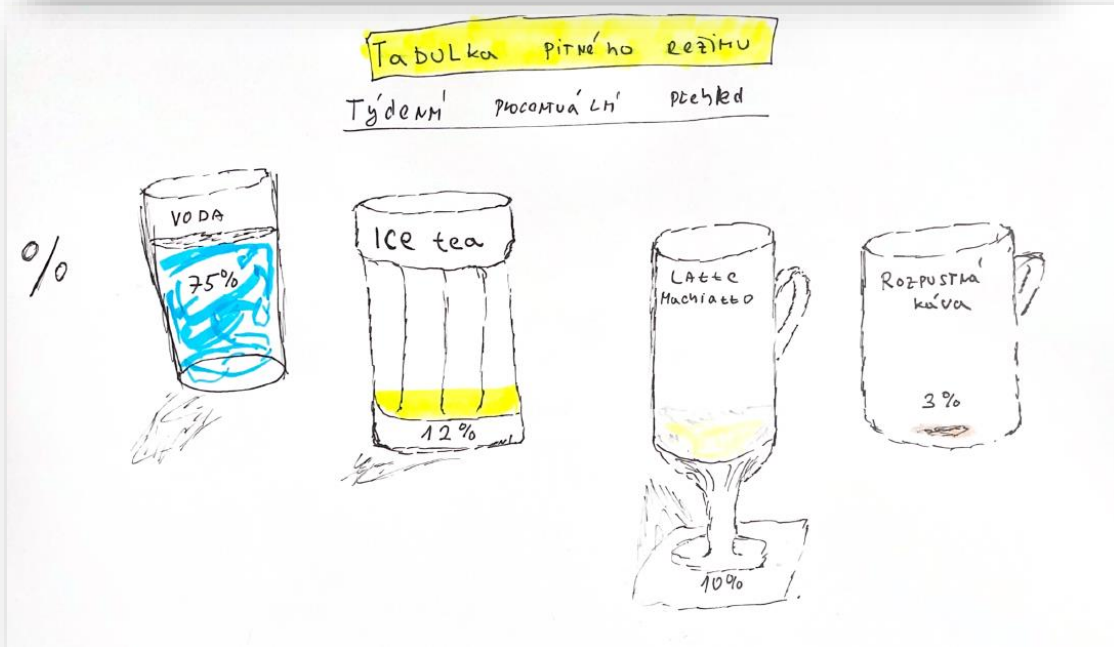 Tabulka pitného režimu
Týdenní procentuální přehled
%
VODA
75%
Ice tea
12%
Latte
Machiatto
10%
Rozpustná
káva
3%